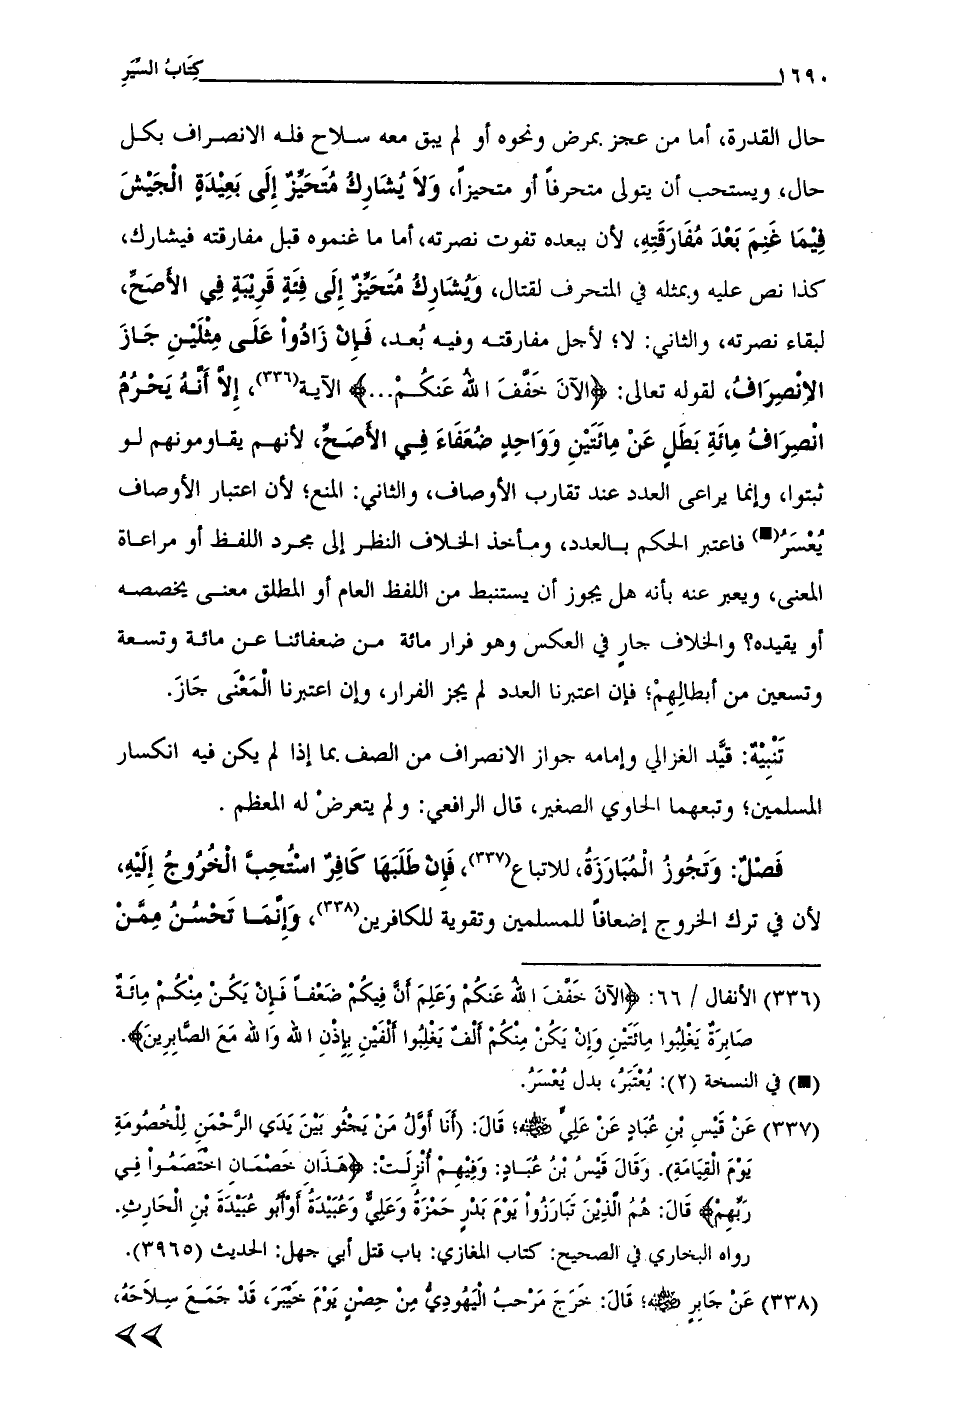 ١٦٩٠ كِتَابُ السِّيَرِ
حال القدرة، أما من عجز بمرض ونحوه أو لم يبق معه سلاح فله الانصراف بكل
حال، ويستحب أن يتولى متحرفاً أو متحيزاً، وَلاَ يُشَارِكُ مُتَحَيِّزٌ إِلَى بَعِيْدَةٍ الْجَيْشَ
فِيْمَا غَنِمَ بَعْدَ مُفَارَقَتِهِ، لأن ببعده تفوت نصرته، أما ما غنموه قبل مفارقته فيشارك،
كذا نص عليه وبمثله في المتحرف لقتال، وَيُشَارِكُ مُتَحَيِّزٌ إِلَى فِئَةٍ قَرِيْبَةٍ فِي الأَصَحِّ،
لبقاء نصرته، والثاني: لا؛ لأجل مفارقته وفيه بُعد، فَإِنْ زَادُواْ عَلَى مِثْلَيْنِ جَازَ
الاِنْصِرَافُ، لقوله تعالى: ﴿الآنَ خَفَّفَ اللهُ عَنكُمْ...﴾ الآية(٣٣٦)، إِلاَّ أَنَّهُ يَحْرُمُ
انْصِرَافُ مِائَةِ بَطَلٍ عَنْ مِائَتَيْنِ وَوَاحِدٍ ضُعَفَاءَ فِي الأَصَحِّ، لأنهم يقاومونهم لو
ثبتوا، وإنما يراعى العدد عند تقارب الأوصاف، والثاني: المنع؛ لأن اعتبار الأوصاف
يُعْسَرُ(■) فاعتبر الحكم بالعدد، ومأخذ الخلاف النظر إلى مجرد اللفظ أو مراعاة
المعنى، ويعبر عنه بأنه هل يجوز أن يستنبط من اللفظ العام أو المطلق معنى يخصصه
أو يقيده؟ والخلاف جارٍ في العكس وهو فرار مائة من ضعفائنا عن مائة وتسعة
وتسعين من أبطالِهِمْ؛ فإن اعتبرنا العدد لم يجز الفرار، وإن اعتبرنا الْمَعْنَى جَازَ.
تَنْبِيْهٌ: قيَّد الغزالي وإمامه جواز الانصراف من الصف بما إذا لم يكن فيه انكسار
المسلمين؛ وتبعهما الحاوي الصغير، قال الرافعي: ولم يتعرضْ له المعظم .
فَصْلٌ: وَتَجُوزُ الْمُبَارَزَةُ، للاتباع(٣٣٧)، فَإِنْ طَلَبَهَا كَافِرٌ اسْتُحِبَّ الْخُرُوجُ إِلَيْهِ،
لأن في ترك الخروج إضعافاً للمسلمين وتقوية للكافرين(٣٣٨)، وَإِنَّمَا تَحْسُنُ مِمَّنْ
(٣٣٦) الأنفال / ٦٦: ﴿الآنَ خَفَّفَ اللهُ عَنكُمْ وَعَلِمَ أَنَّ فِيكُمْ ضَعْفاً فَإِنْ يَكُنْ مِنْكُمْ مِائَةٌ
صَابِرَةٌ يَغْلِبُوا مِائَتَيْنِ وَإِنْ يَكُنْ مِنْكُمْ أَلْفٌ يَغْلِبُوا أَلْفَيْنِ بِإِذْنِ اللهِ وَاللهُ مَعَ الصَّابِرِينَ﴾.
(■) في النسخة (٢): يُعْتَبَرُ، بدل يُعْسَرُ.
(٣٣٧) عَنْ قَيْسِ بْنِ عُبَادٍ عَنْ عَلِيٍّ ﷺ؛ قَالَ: (أَنَا أَوَّلُ مَنْ يَجْثُو بَيْنَ يَدَي الرَّحْمَنِ لِلْخُصُومَةِ
يَوْمَ الْقِيَامَةِ). وَقَالَ قَيْسُ بْنُ عُبَادٍ: وَفِيهِمْ أُنْزِلَتْ: ﴿هَذَانِ خَصْمَانِ اخْتَصَمُواْ فِي
رَبِّهِمْ﴾ قَالَ: هُمُ الَّذِيْنَ تَبَارَزُواْ يَوْمَ بَدْرٍ حَمْزَةُ وَعَلِيٌّ وَعُبَيْدَةُ أَوْأَبُو عُبَيْدَةَ بْنِ الْحَارِثِ.
رواه البخاري في الصحيح: كتاب المغازي: باب قتل أبي جهل: الحديث (٣٩٦٥).
(٣٣٨) عَنْ جَابِرٍ ﷺ؛ قَالَ: خَرَجَ مَرْحَبُ الْيَهُودِيُّ مِنْ حِصْنٍ يَوْمَ خَيْبَرَ، قَدْ جَمَعَ سِلاَحَهُ،